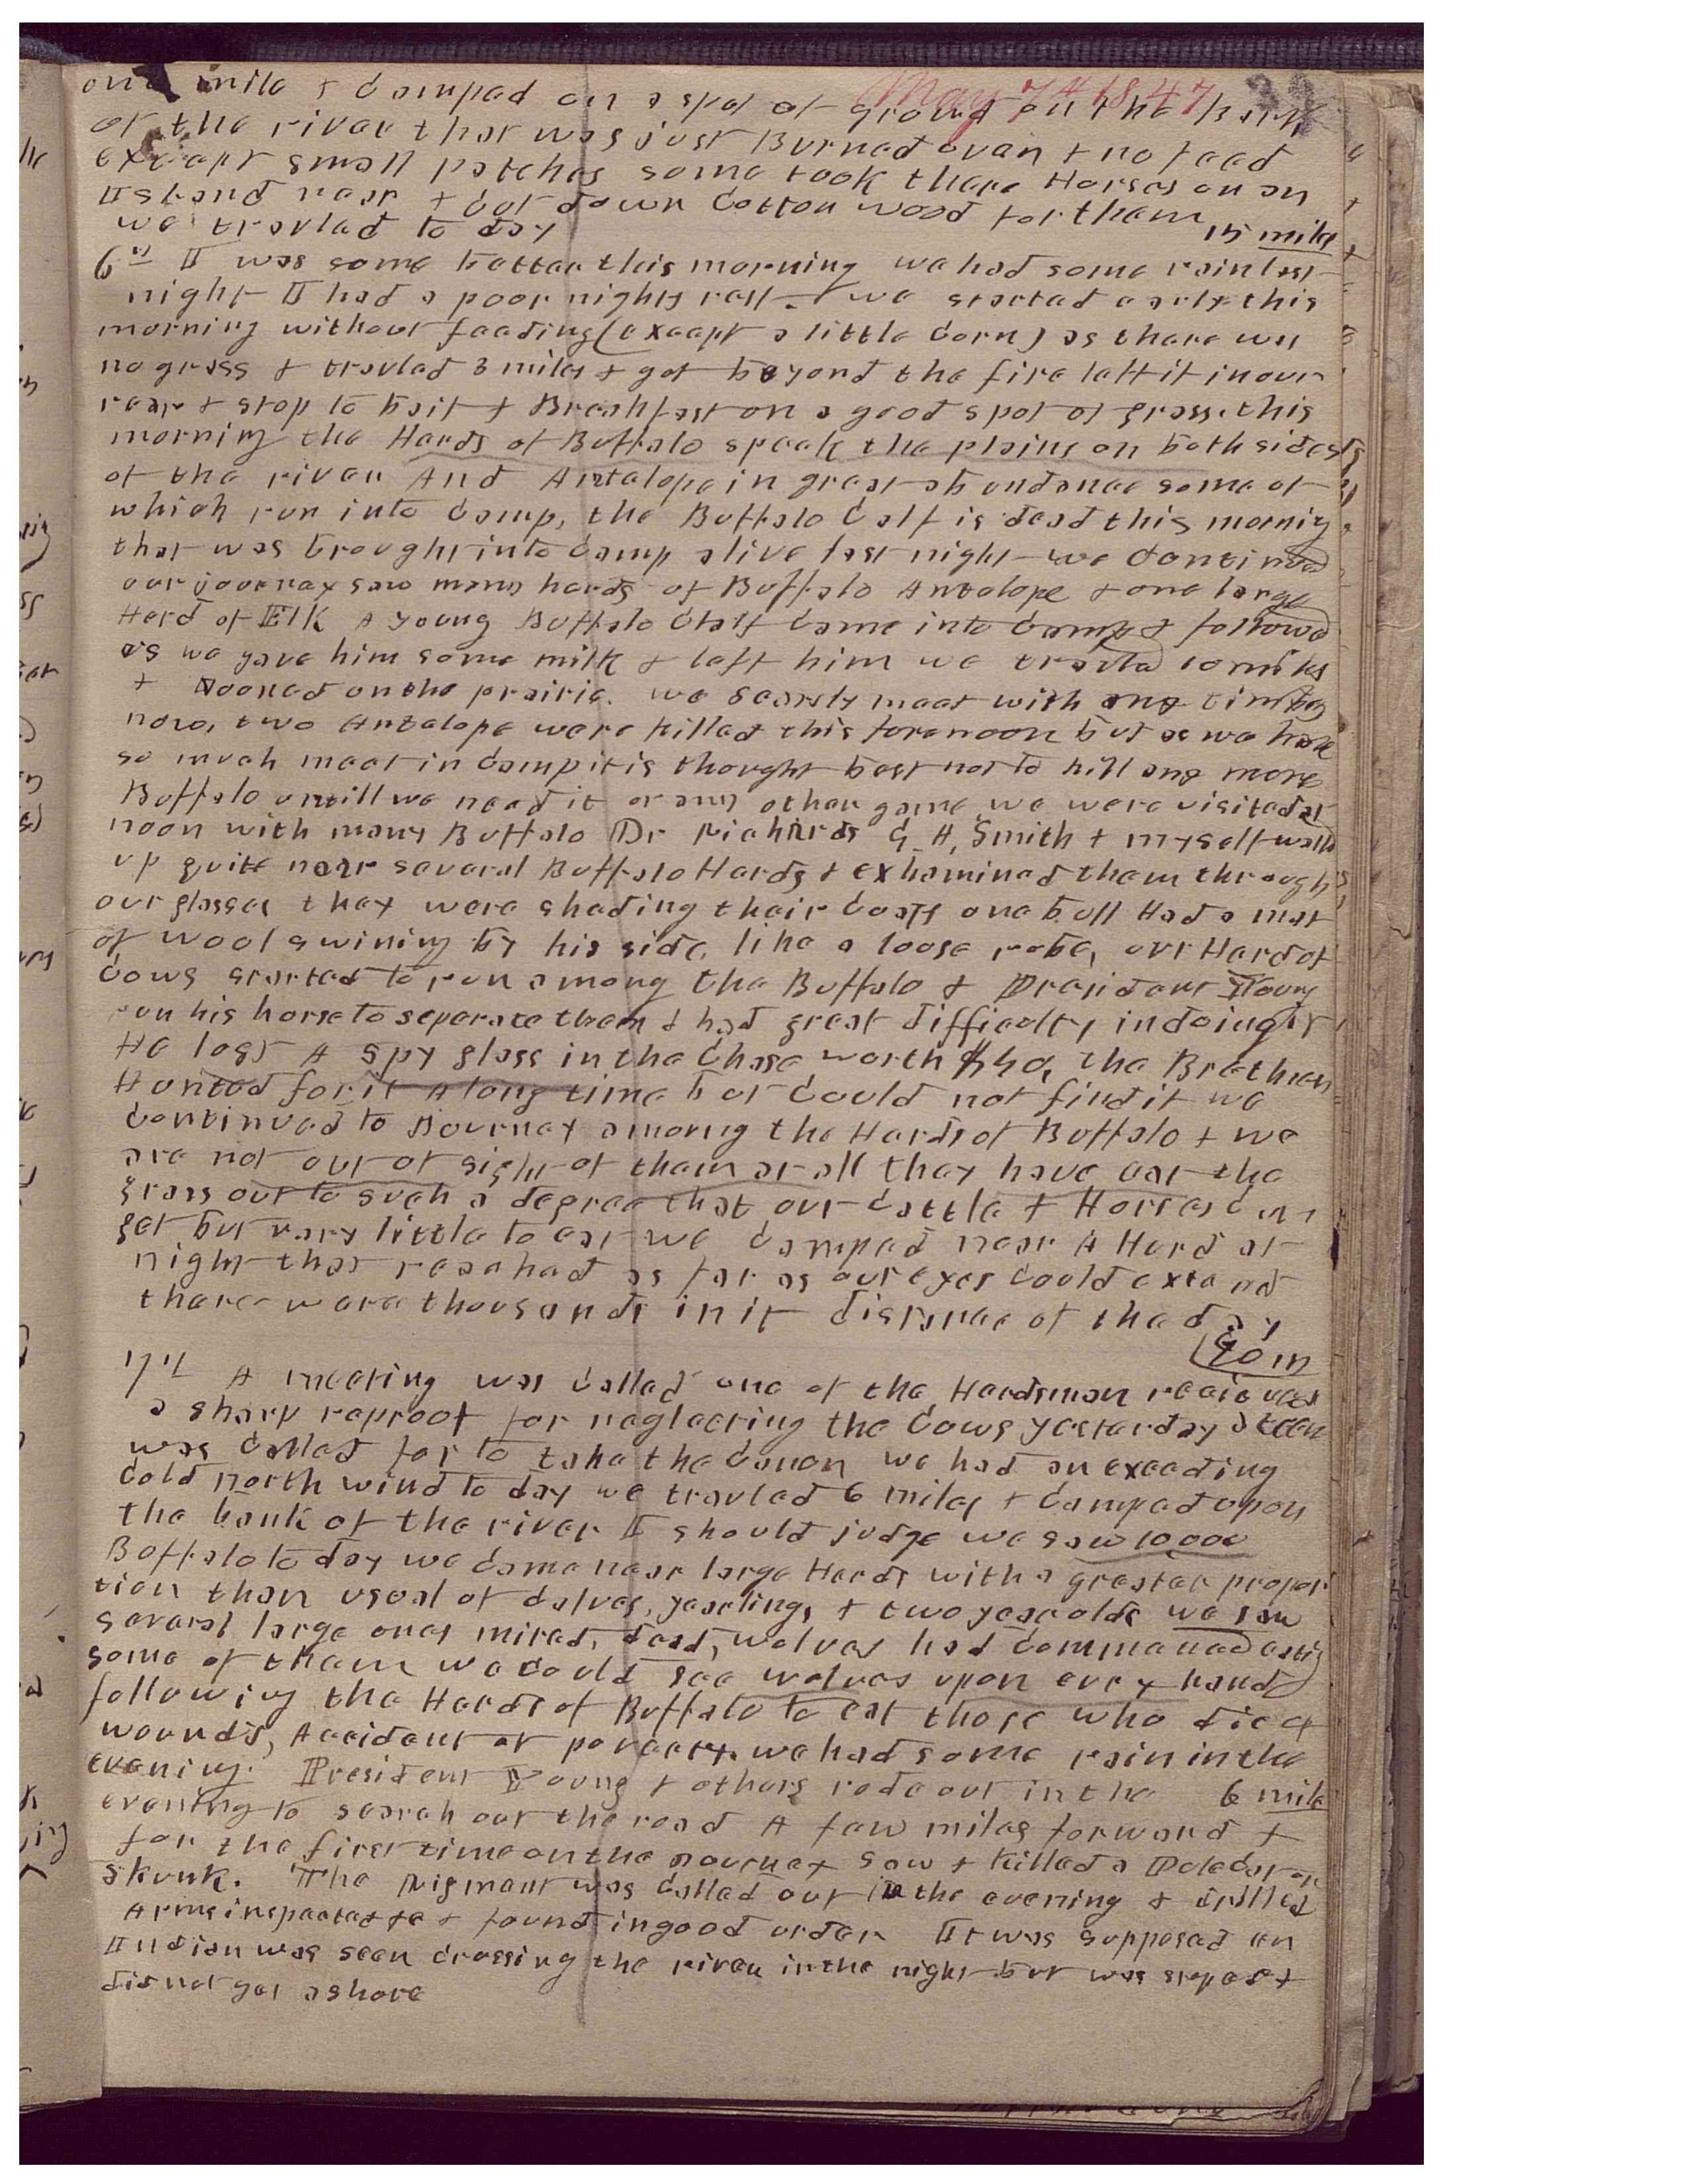 May 7th 1847
one mile & camped on a spot of ground on the bank
of the river that was just Burned over & no feed
except small patches some took there Horses on an
Island near & cut down cotton wood for them
we travled to day 15 mile
6th I was some better this morning we had some rain last
night I had a poor nights rest we started early this
morning without feeding (except a little corn) as there was
no grass & travled 3 miles & got beyond the fire left it in our
rear & stop to bait & Breakfast on a good spot of grass. this
morning the Herds of Buffalo speak the plains on both sides
of the river And Antelope in great abundance some of
which run into camp, the Buffalo Calf is dead this morning
that was brought into camp alive last night we continued
our journey saw many herds of Buffalo Antelope & one large
Herd of Elk A young Buffalo Calf came into camp & followed
as we gave him some milk & left him we travled 10 miles
& Nooned on the prairie. we scarsly meet with any timber
now, two Antelope were killed this forenoon but as we have
so much meat in camp it is thought best not to kill any more
Buffalo untill we need it or any other game we were visited at
noon with many Buffalo Dr Richards G. A. Smith & myself walk
up quite near several Buffalo Herds & exhamined them through
our glasses they were shading their coats one bull Had a mat
of wool swining by his side, like a loose robe, our Herd of
cows started to run among the Buffalo & President Young
run his horse to separate them & had great difficulty in doing it
He lost A spy glass in the Chase worth $40, the Brethren
Hunted for it A long time but could not find it we
continued to Journey among the Herds of Buffalo & we
are not out of sight of them at all they have eat the
grass out to such a degree that our cattle & Horses can
get but very little to eat we camped near A Herd at
night that reached as far as our eyes could extend
there were thousands in it distance of the day
7th A meeting was called one of the Herdsman recieved
a sharp reproof for neglecting the cows yesterday a team
was called for to take the canon we had an exceding
cold north wind to day we travled 6 miles & camped upon
the bank of the river I should judge we saw 10,000
Buffalo to day we came near large Herds with a greater propor
tion than usual of calves, yearlings & two year olds we saw
several large ones mired, dead, wolves had commenced eating
some of them we could see wolves upon every hand
following the Herds of Buffalo to eat those who die of
wounds, Accident or poverty. we had some rain in the
evening. President Young & others rode out in the 6 mile
evening to search out the road A few miles forward &
for the first time on the journey saw & killed a Polecat or
skunk. The Rigment was called out in the evening & drilled
Arms inspected &c & found in good order It was supposed an
Indian was seen crossing the river in the night but was &
did not get ashore